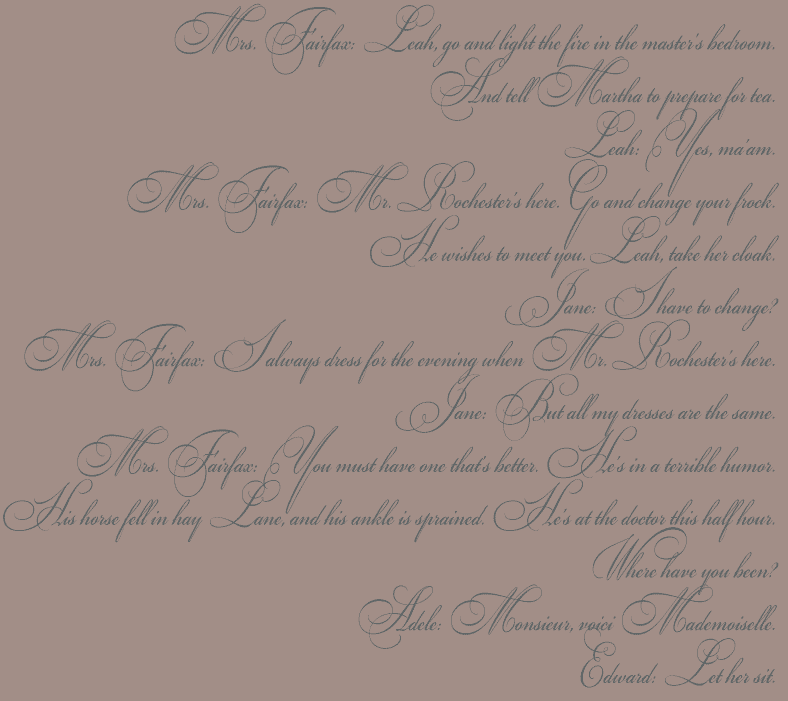 Mrs. Fairfax: Leah, go and light the fire in the master's bedroom.
And tell Martha to prepare for tea.
Leah: Yes, ma'am.
Mrs. Fairfax: Mr. Rochester's here. Go and change your frock.
He wishes to meet you. Leah, take her cloak.
Jane: I have to change?
Mrs. Fairfax: I always dress for the evening when Mr. Rochester's here.
Jane: But all my dresses are the same.
Mrs. Fairfax: You must have one that's better. He's in a terrible humor.
His horse fell in hay Lane, and his ankle is sprained. He's at the doctor this half hour.
Where have you been?
Adele: Monsieur, voici Mademoiselle.
Edward: Let her sit.